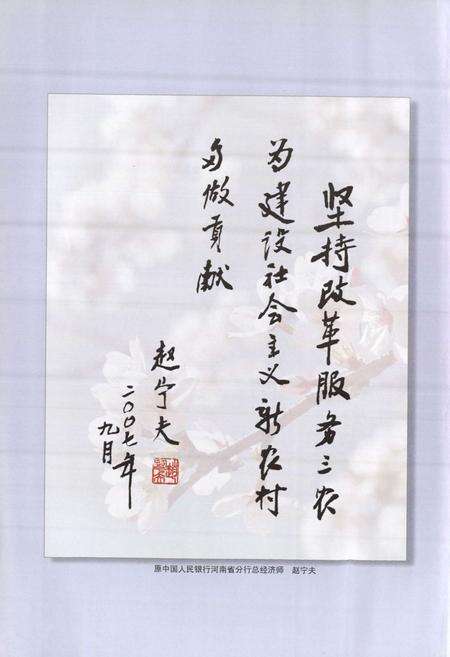 坚持改革服务三农
为建设社会主义新农村
多做贡献
赵宁夫
二〇〇七年
九月
原中国人民银行河南省分行总经济师 赵宁夫